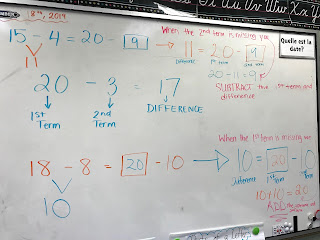 8th, 2019
Quelle est la date?
When the 2nd term is missing you
15 - 4 = 20 - 9
11
11 = 20 - 9
Difference
20 - 11 = 9
SUBTRACT the 1st term and
difference
20 - 3 = 17
1st Term
2nd Term
DIFFERENCE
When the 1st term is missing you
18 - 8 = 20 - 10
10
10 = 20 - 10
Difference
1st Term
10 + 10 = 20
ADD the